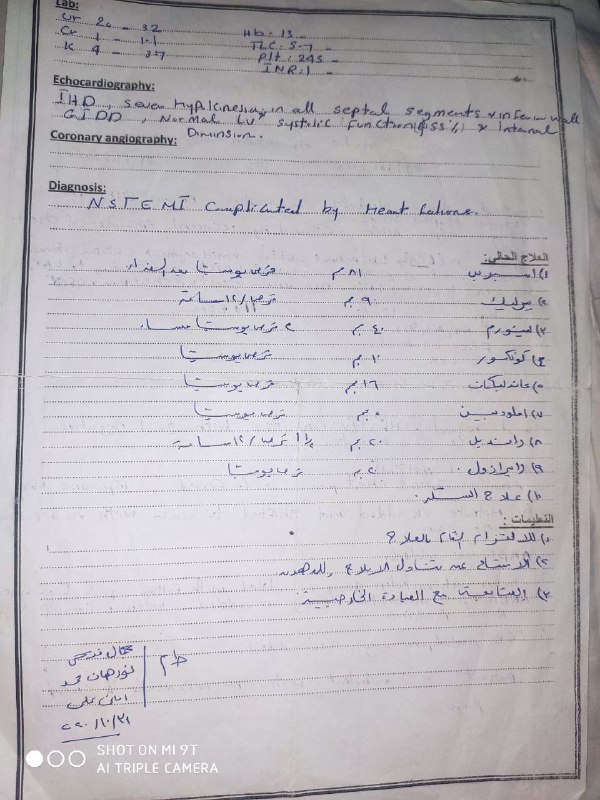 Lab:
Ur 20 - 32
Cr 1 - 1.1
K 4 - 3.7
Hb: 13 -
TLC: 5.7 -
Plt: 245 -
INR: 1 -
Echocardiography:
IHD, sever hypkinesia in all septal segments & inferior wall
GIDD, Normal LV systolic function (55%) & Internal
Dimension.
Coronary angiography:
Diagnosis:
NSTEMI Complicated by Heart failure.
العلاج الحالي:
١) اسبرين ٨١ مجم قرص يوميا بعد الغداء
٢) بريليك ٩٠ مجم قرص / ١٢ ساعة
٣) ليبونورم ٤٠ مجم ٢ قرص يوميا مساء
٤) كونكور ١٠ مجم قرص يوميا
١٦ مجم قرص يوميا
املودبين ٥ مجم قرص يوميا
٨) ٢٠ مجم ١/٢ ١ قرص / ١٢ ساعة
٩) ٤٠ مجم قرص يوميا
١٠) علاج السكر.
التعليمات:
١) الالتزام التام بالعلاج
٢) الامتناع عن تناول الاملاح والدهون
٣) المتابعة مع العيادة الخارجية
ط ٣
نورهان محمد
امانى على
SHOT ON MI 9T
AI TRIPLE CAMERA